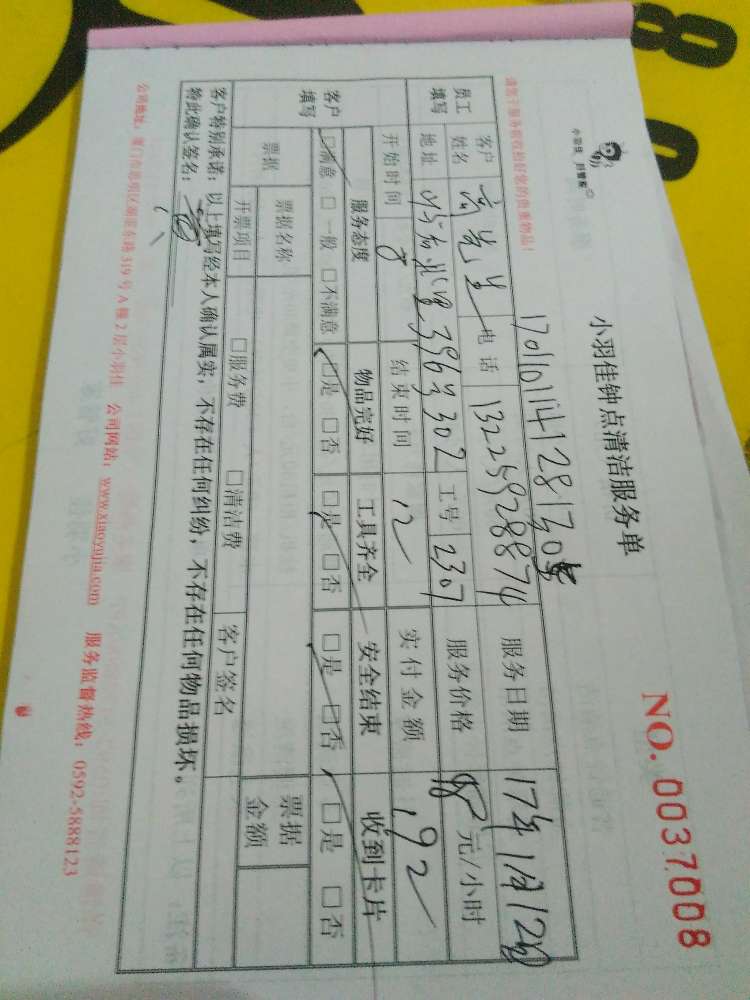 小羽佳 阿管家
小羽佳钟点清洁服务单
NO. 0037008
请您于服务前收拾好您的贵重物品!
员工填写
客户姓名 高先生 电话 13225928874 服务日期 17年1月12日
地址 396号302 工号 2307 服务价格 48 元/小时
开始时间 8 结束时间 12 实付金额 192
客户填写
服务态度 物品完好 工具齐全 安全结束 收到卡片
□满意 □一般 □不满意 □是 □否 □是 □否 □是 □否 □是 □否
票据 票据名称 票据金额
开票项目 □服务费 □清洁费 客户签名
客户特别承诺:以上填写经本人确认属实,不存在任何纠纷,不存在任何物品损坏。
特此确认签名:
公司地址:厦门市思明区湖滨东路319号A幢2层小羽佳 公司网站:www.xiaoyujia.com 服务监督热线:0592-5888123